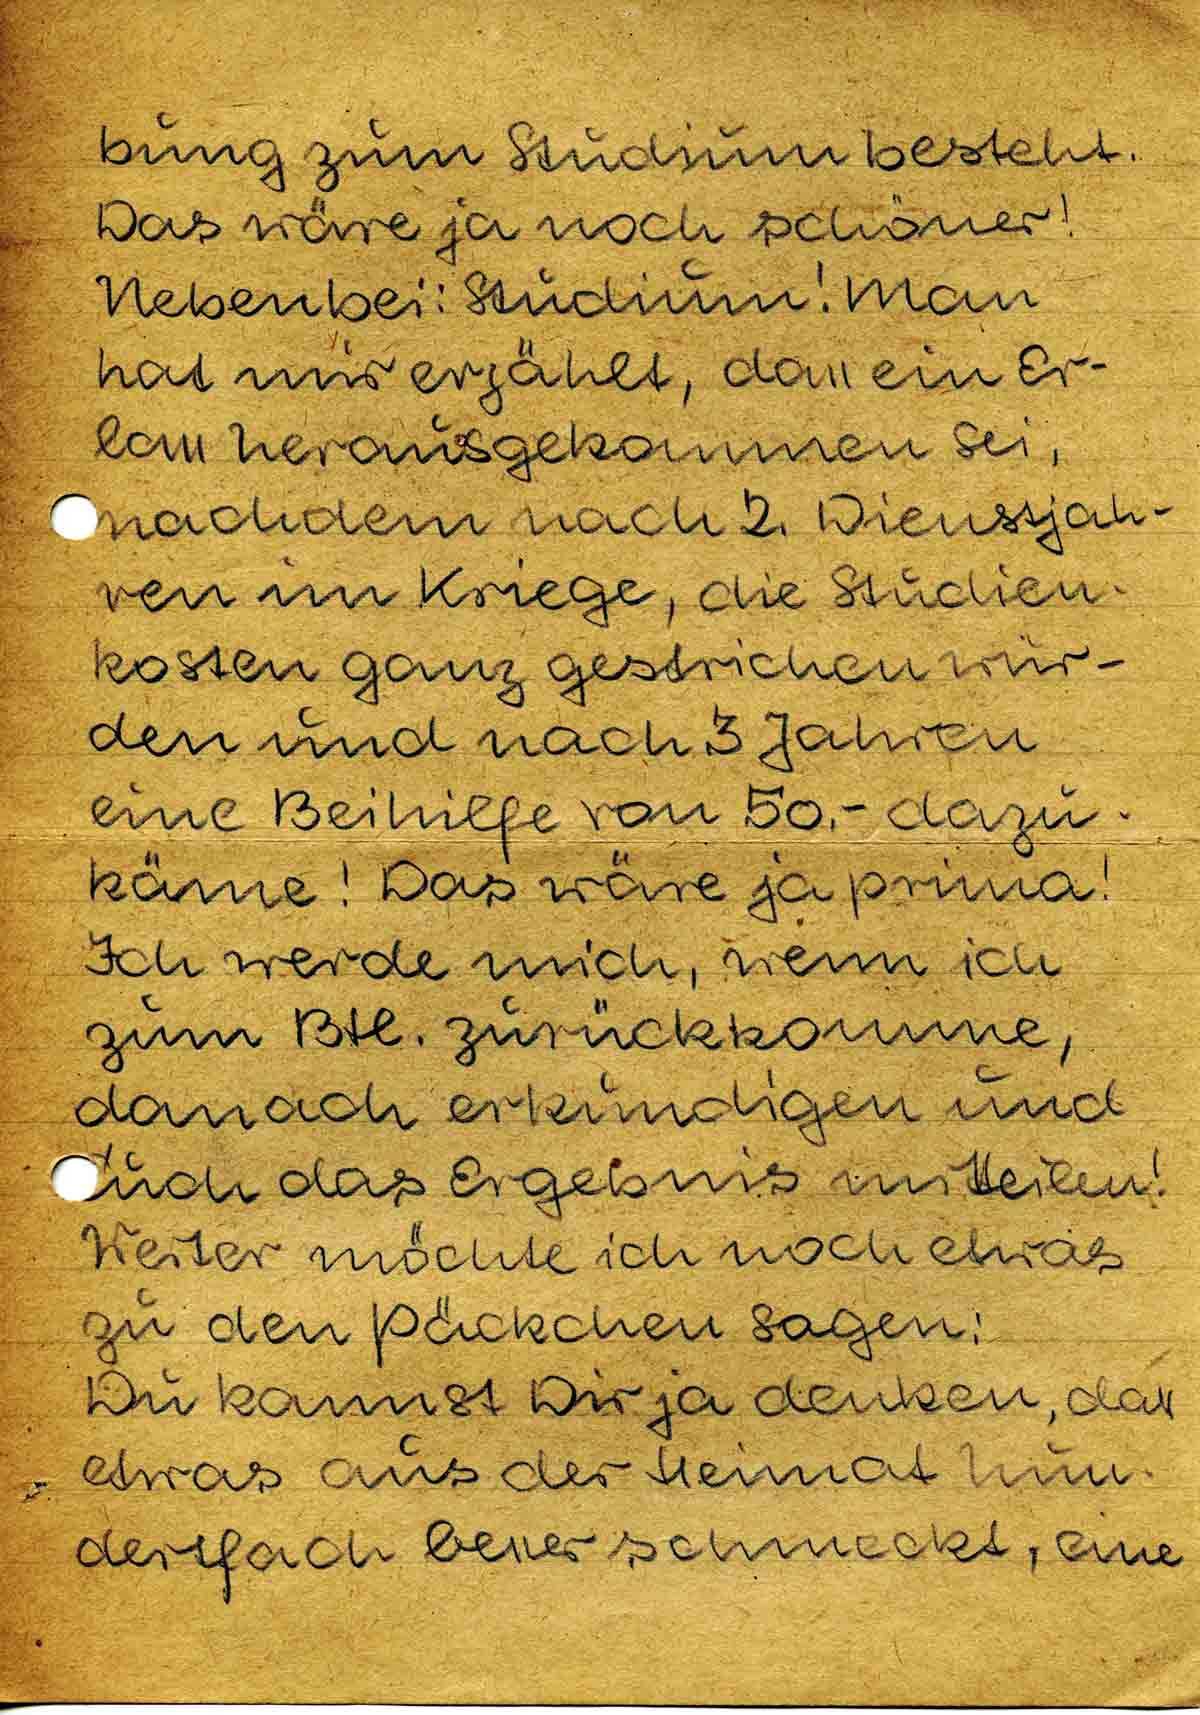 bung zum Studium besteht.
Das wäre ja noch schöner!
Nebenbei: Studium! Man
hat mir erzählt, dass ein Er-
lass herausgekommen sei,
nachdem nach 2. Dienstjah-
ren im Kriege, die Studien-
kosten ganz gestrichen wür-
den und nach 3 Jahren
eine Beihilfe von 50.- dazu-
käme! Das wäre ja prima!
Ich werde mich, wenn ich
zum Btl. zurückkomme,
danach erkundigen und
Euch das Ergebnis mitteilen!
Weiter möchte ich noch etwas
zu den Päckchen sagen:
Du kannst Dir ja denken, dass
etwas aus der Heimat hun-
dertfach besser schmeckt, eine